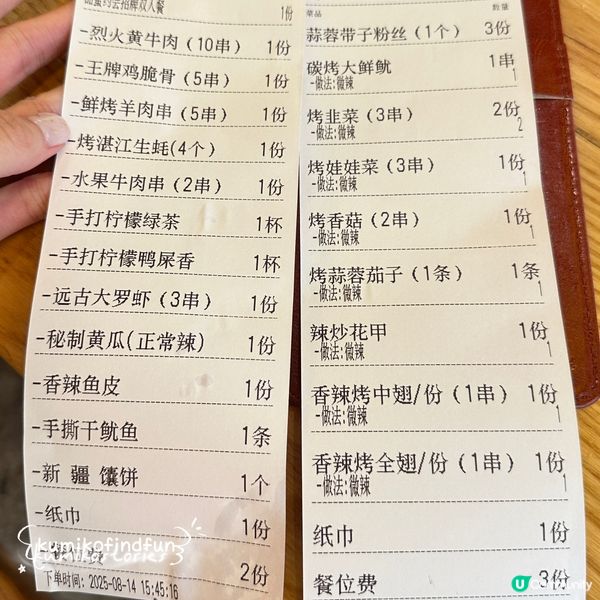 甜蜜约会招牌双人餐 1份
-烈火黄牛肉（10串） 1份
-王牌鸡脆骨（5串） 1份
-鲜烤羊肉串（5串） 1份
-烤湛江生蚝(4个) 1份
-水果牛肉串（2串） 1份
-手打柠檬绿茶 1杯
-手打柠檬鸭屎香 1杯
-远古大罗虾（3串） 1份
-秘制黄瓜(正常辣) 1份
-香辣鱼皮 1份
-手撕干鱿鱼 1条
-新 疆 馕饼 1个
-纸巾 1份
2份
下单时间: 2025-08-14 15:45:16
菜品 数量
蒜蓉带子粉丝（1个） 3份
碳烤大鲜鱿 1串
-做法:微辣 1
烤韭菜（3串） 2份
-做法:微辣 2
烤娃娃菜（3串） 1份
-做法:微辣 1
烤香菇（2串） 1份
-做法:微辣 1
烤蒜蓉茄子（1条） 1条
-做法:微辣 1
辣炒花甲 1份
-做法:微辣 1
香辣烤中翅/份（1串） 1份
-做法:微辣 1
香辣烤全翅/份（1串） 1份
-做法:微辣 1
纸巾 1份
餐位费 3份
kumikofindfun
U Community